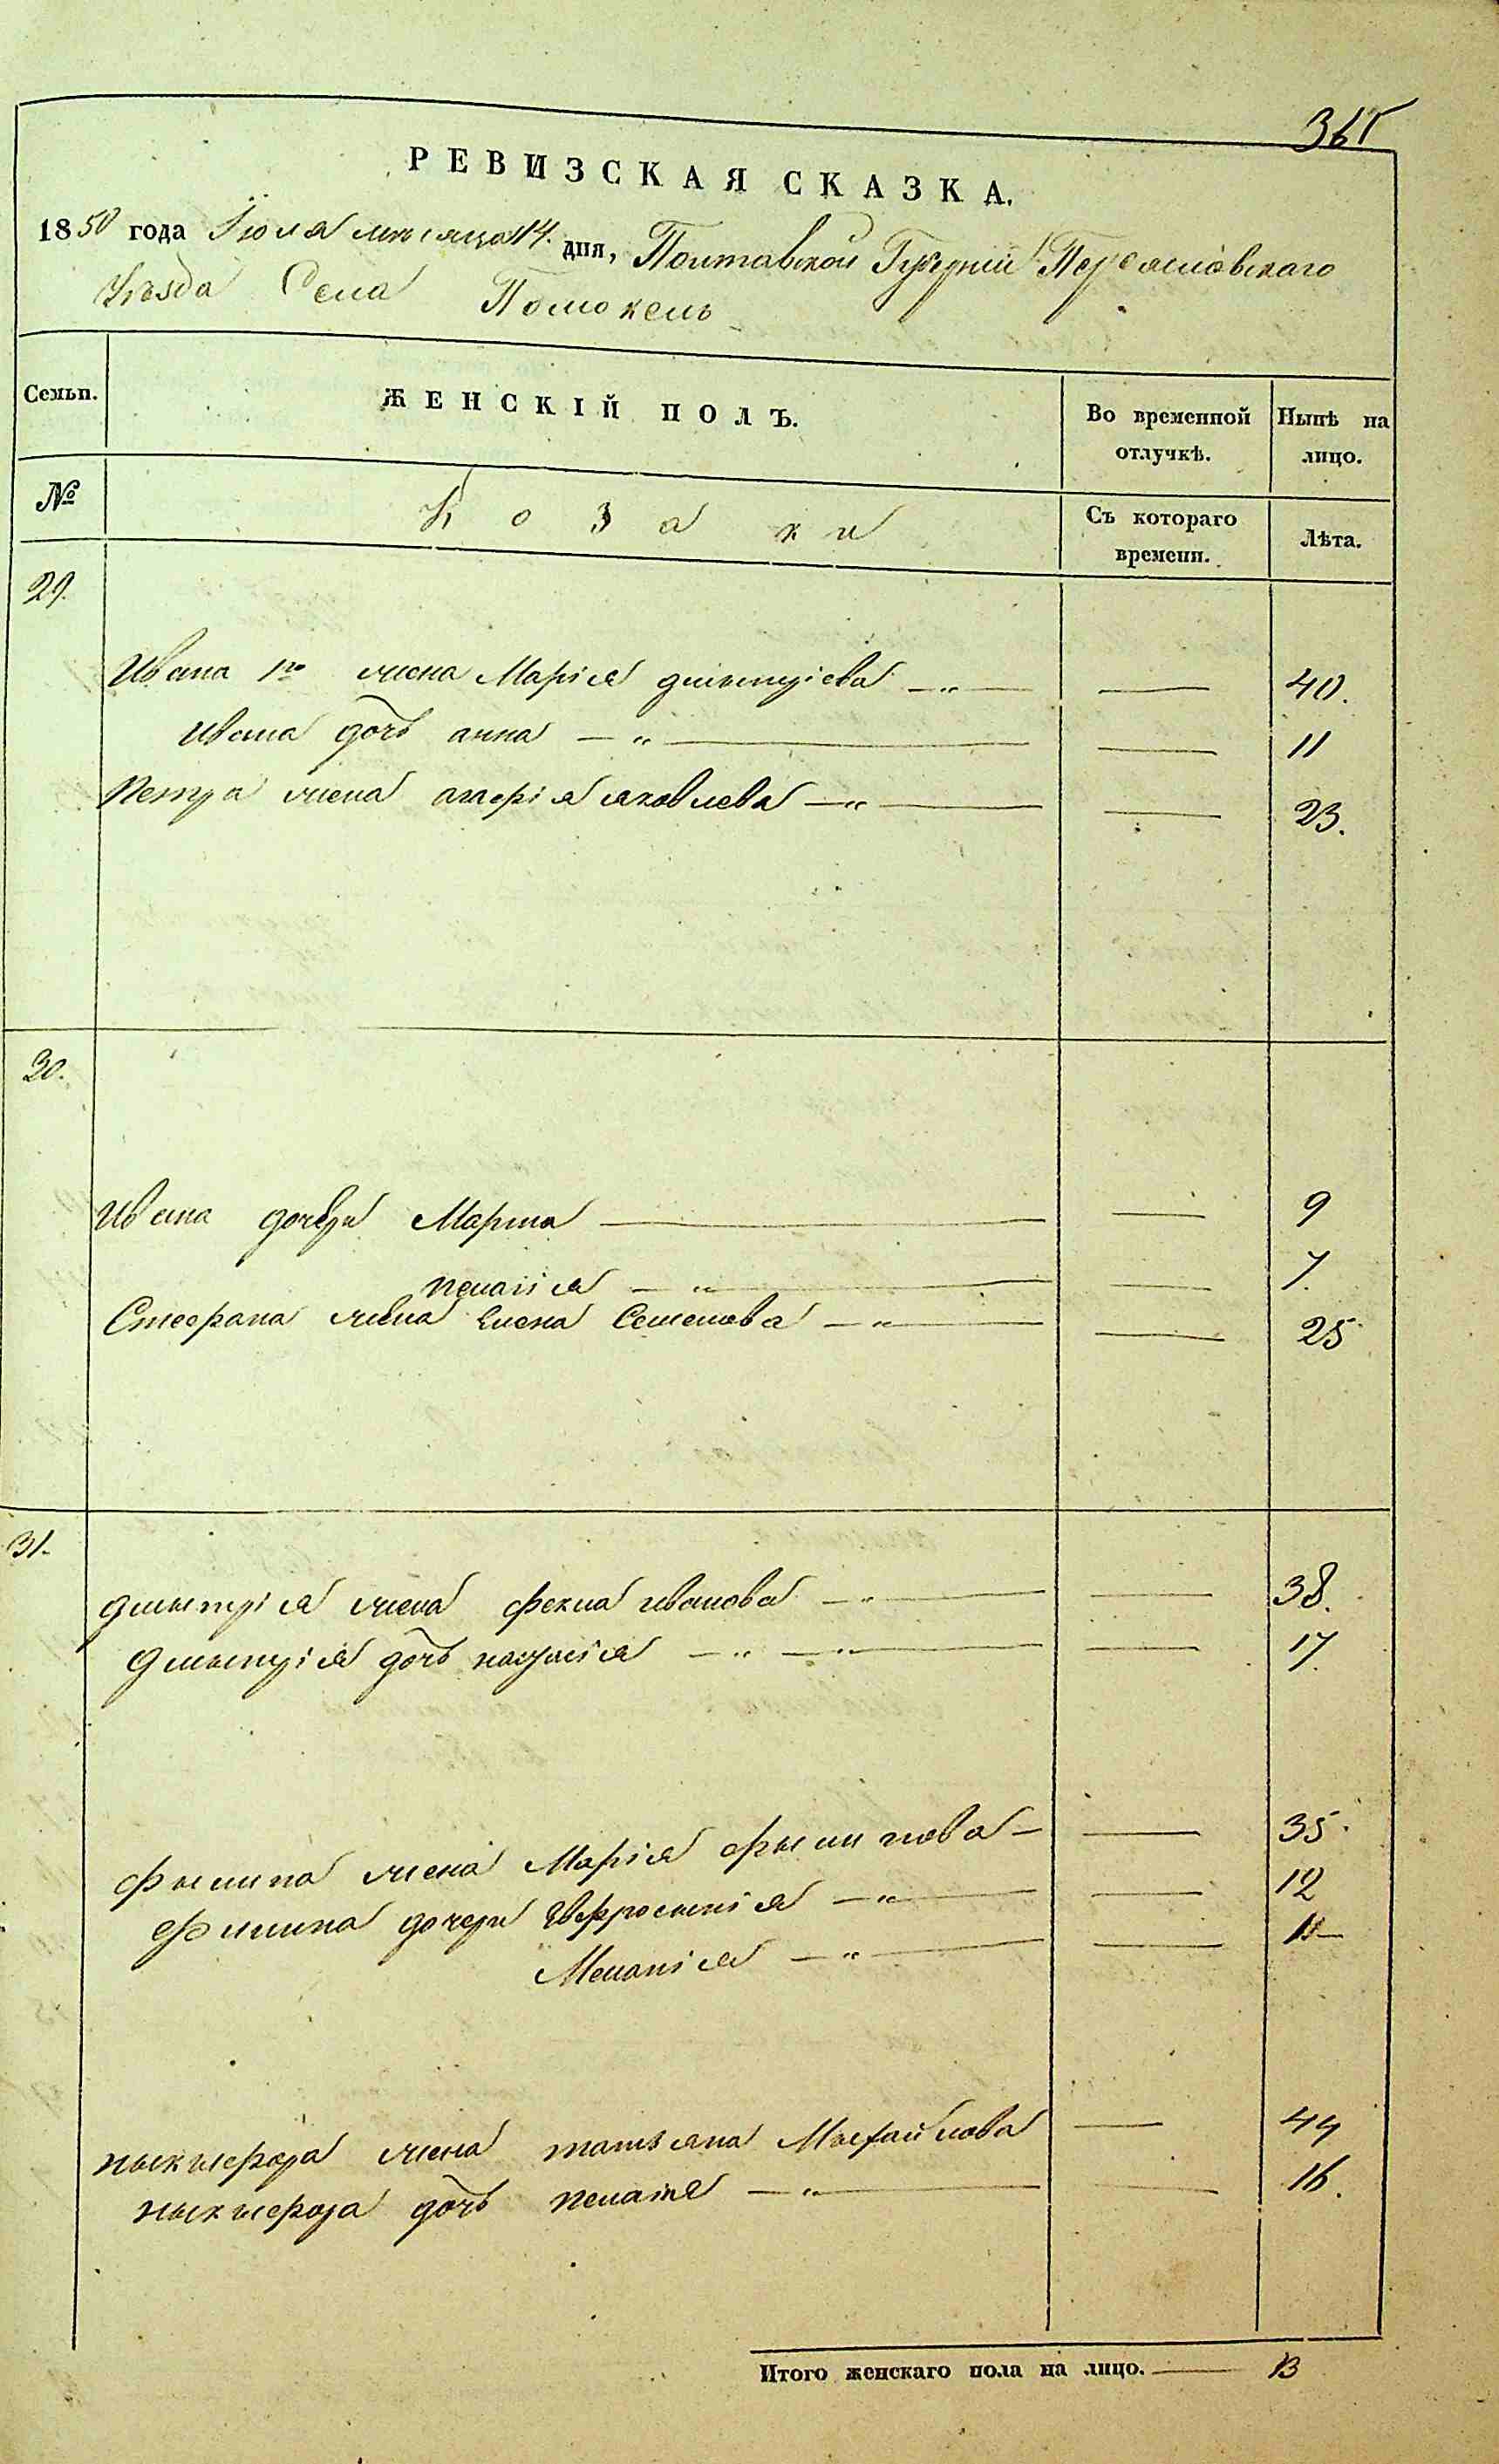 365
РЕВИЗСКАЯ СКАЗКА.
1850 года Іюля месяца 14. дня, Полтавской Губерніи Переяславскаго
Уѣзда Села Помоклъ
Семьи. ЖЕНСКІЙ ПОЛЪ. Во временной отлучкѣ. Нынѣ на лицо.
№ Козаки Съ котораго времени. Лѣта.
29.
Ивана 1го жена Марія дмытріева —„— — 40.
Ивана дочь анна —„— — 11
Петра жена агафія яковлева —„— — 23.
30.
Ивана дочери Марта — — 9
пелагія —„— — 7.
Стефана жена Елена Семенова —„— — 25
31.
дмытрія жена фекла иванова —„— — 38.
дмытрія дочь наталія —„— —„— — 17.
Фылипа жена Марія фылипова — — 35.
Филипа дочери Ефросинія —„— — 12
Меланія —„— — 11—
ныкифора жена татьяна Мыхайлова — 44
ныкифора дочь пелагія —„— — 16.
Итого женскаго пола на лицо. — 13